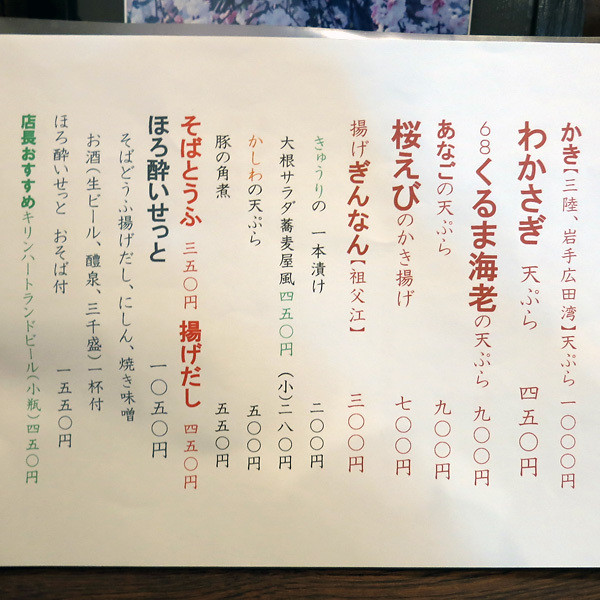 かき【三陸、岩手広田湾】天ぷら 一〇〇〇円
わかさぎ 天ぷら 四五〇円
68くるま海老の天ぷら 九〇〇円
あなごの天ぷら 九〇〇円
桜えびのかき揚げ 七〇〇円
揚げぎんなん【祖父江】 三〇〇円
きゅうりの 一本漬け 二〇〇円
大根サラダ蕎麦屋風四五〇円 (小)二八〇円
かしわの天ぷら 五〇〇円
豚の角煮 五五〇円
そばとうふ 三五〇円 揚げだし 四五〇円
ほろ酔いせっと 一〇五〇円
そばどうふ揚げだし、にしん、焼き味噌
お酒(生ビール、醴泉、三千盛)一杯付
ほろ酔いせっと おそば付 一五五〇円
店長おすすめキリンハートランドビール(小瓶)四五〇円